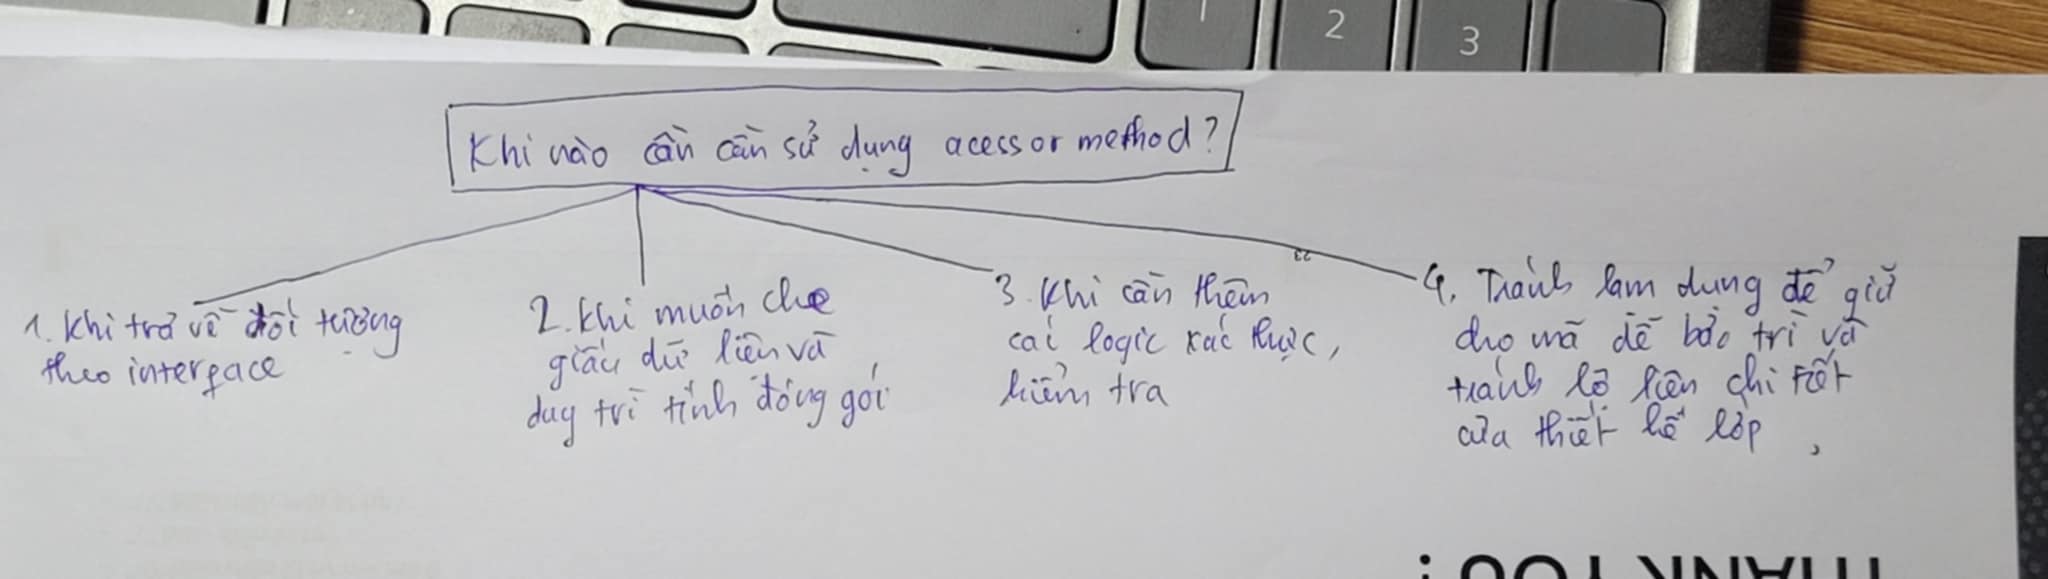 2
3
Khi nào cần cần sử dụng acessor method?
1. Khi trả về đối tượng
theo interface
2. Khi muốn che
giấu dữ liên và
duy trì tính đóng gói
3. Khi cần thêm
cai logic xác thực,
kiểm tra
4. Tránh lam dung để giữ
cho mã dễ bảo trì và
tránh lộ liên chi tiết
của thiết kế lớp,
23
THANK YOU !